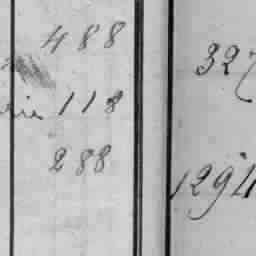 488
118
288
32
1294